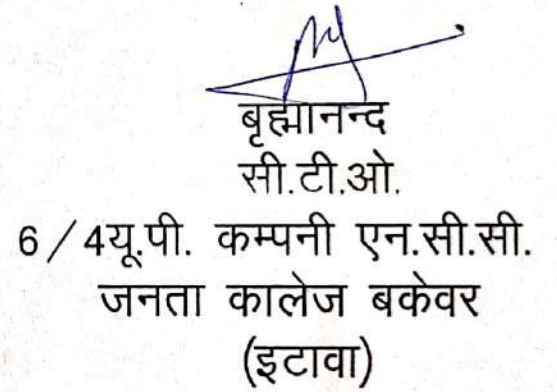 बृह्मानन्द
सी.टी.ओ.
6/4यू.पी. कम्पनी एन.सी.सी.
जनता कालेज बकेवर
(इटावा)